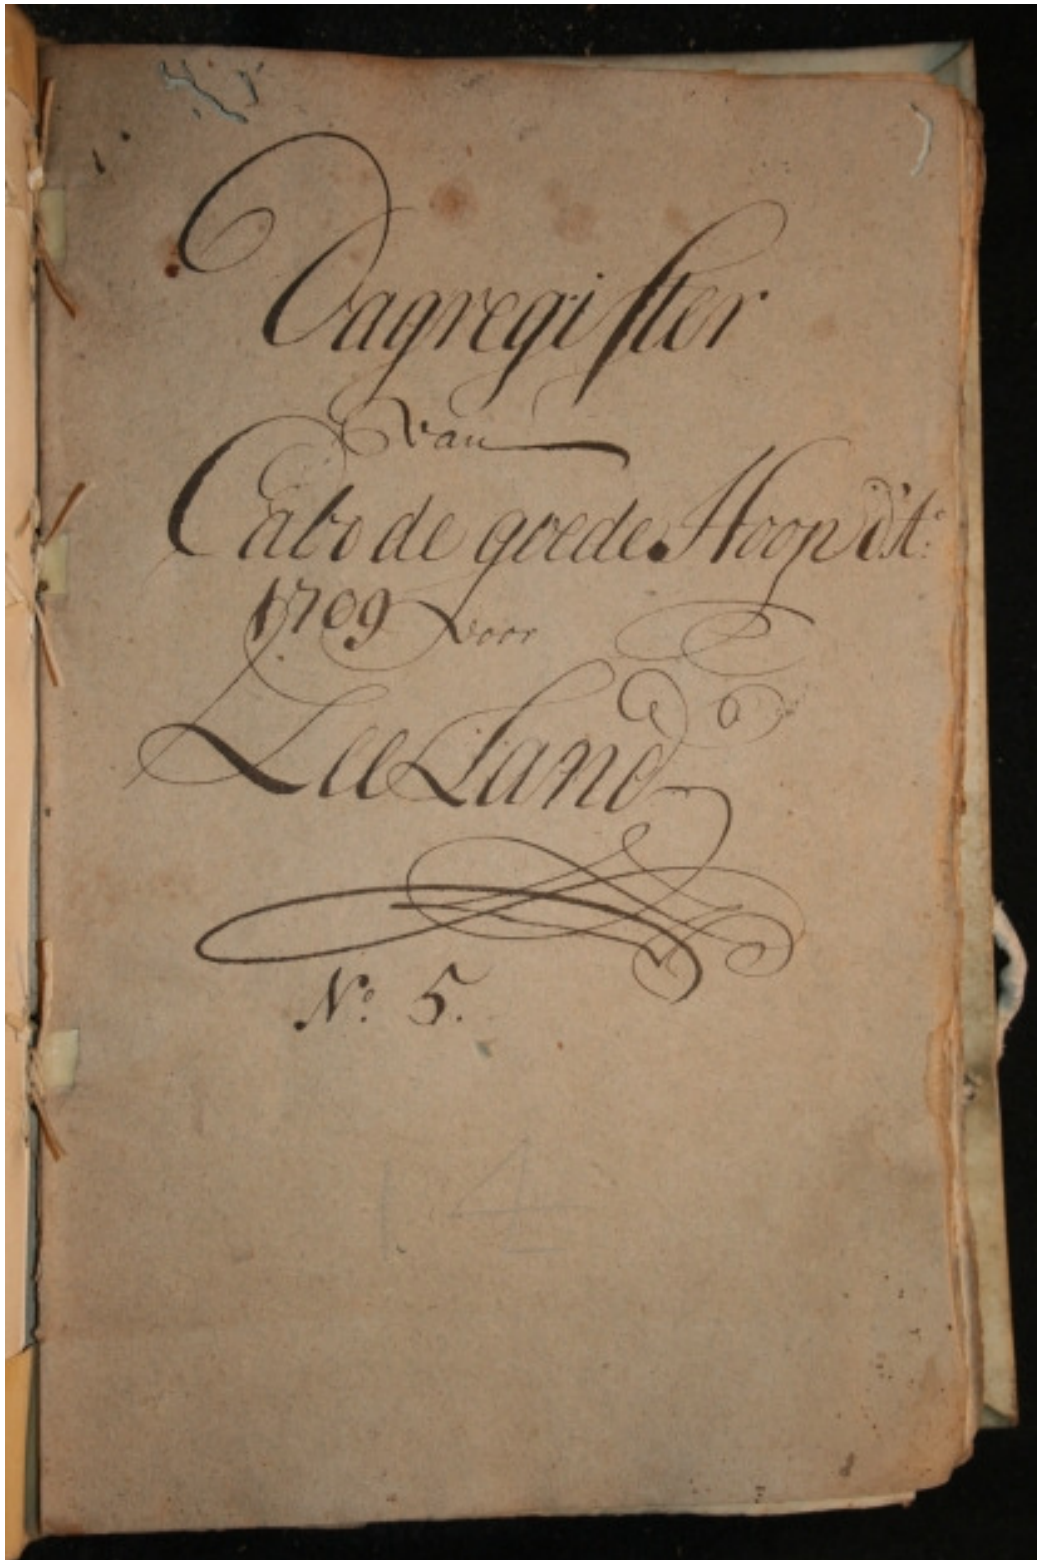 Dagregister
van
Cabo de goede Hoop d'A.o
1709 voor
ZeeLand
N.o 5.
14